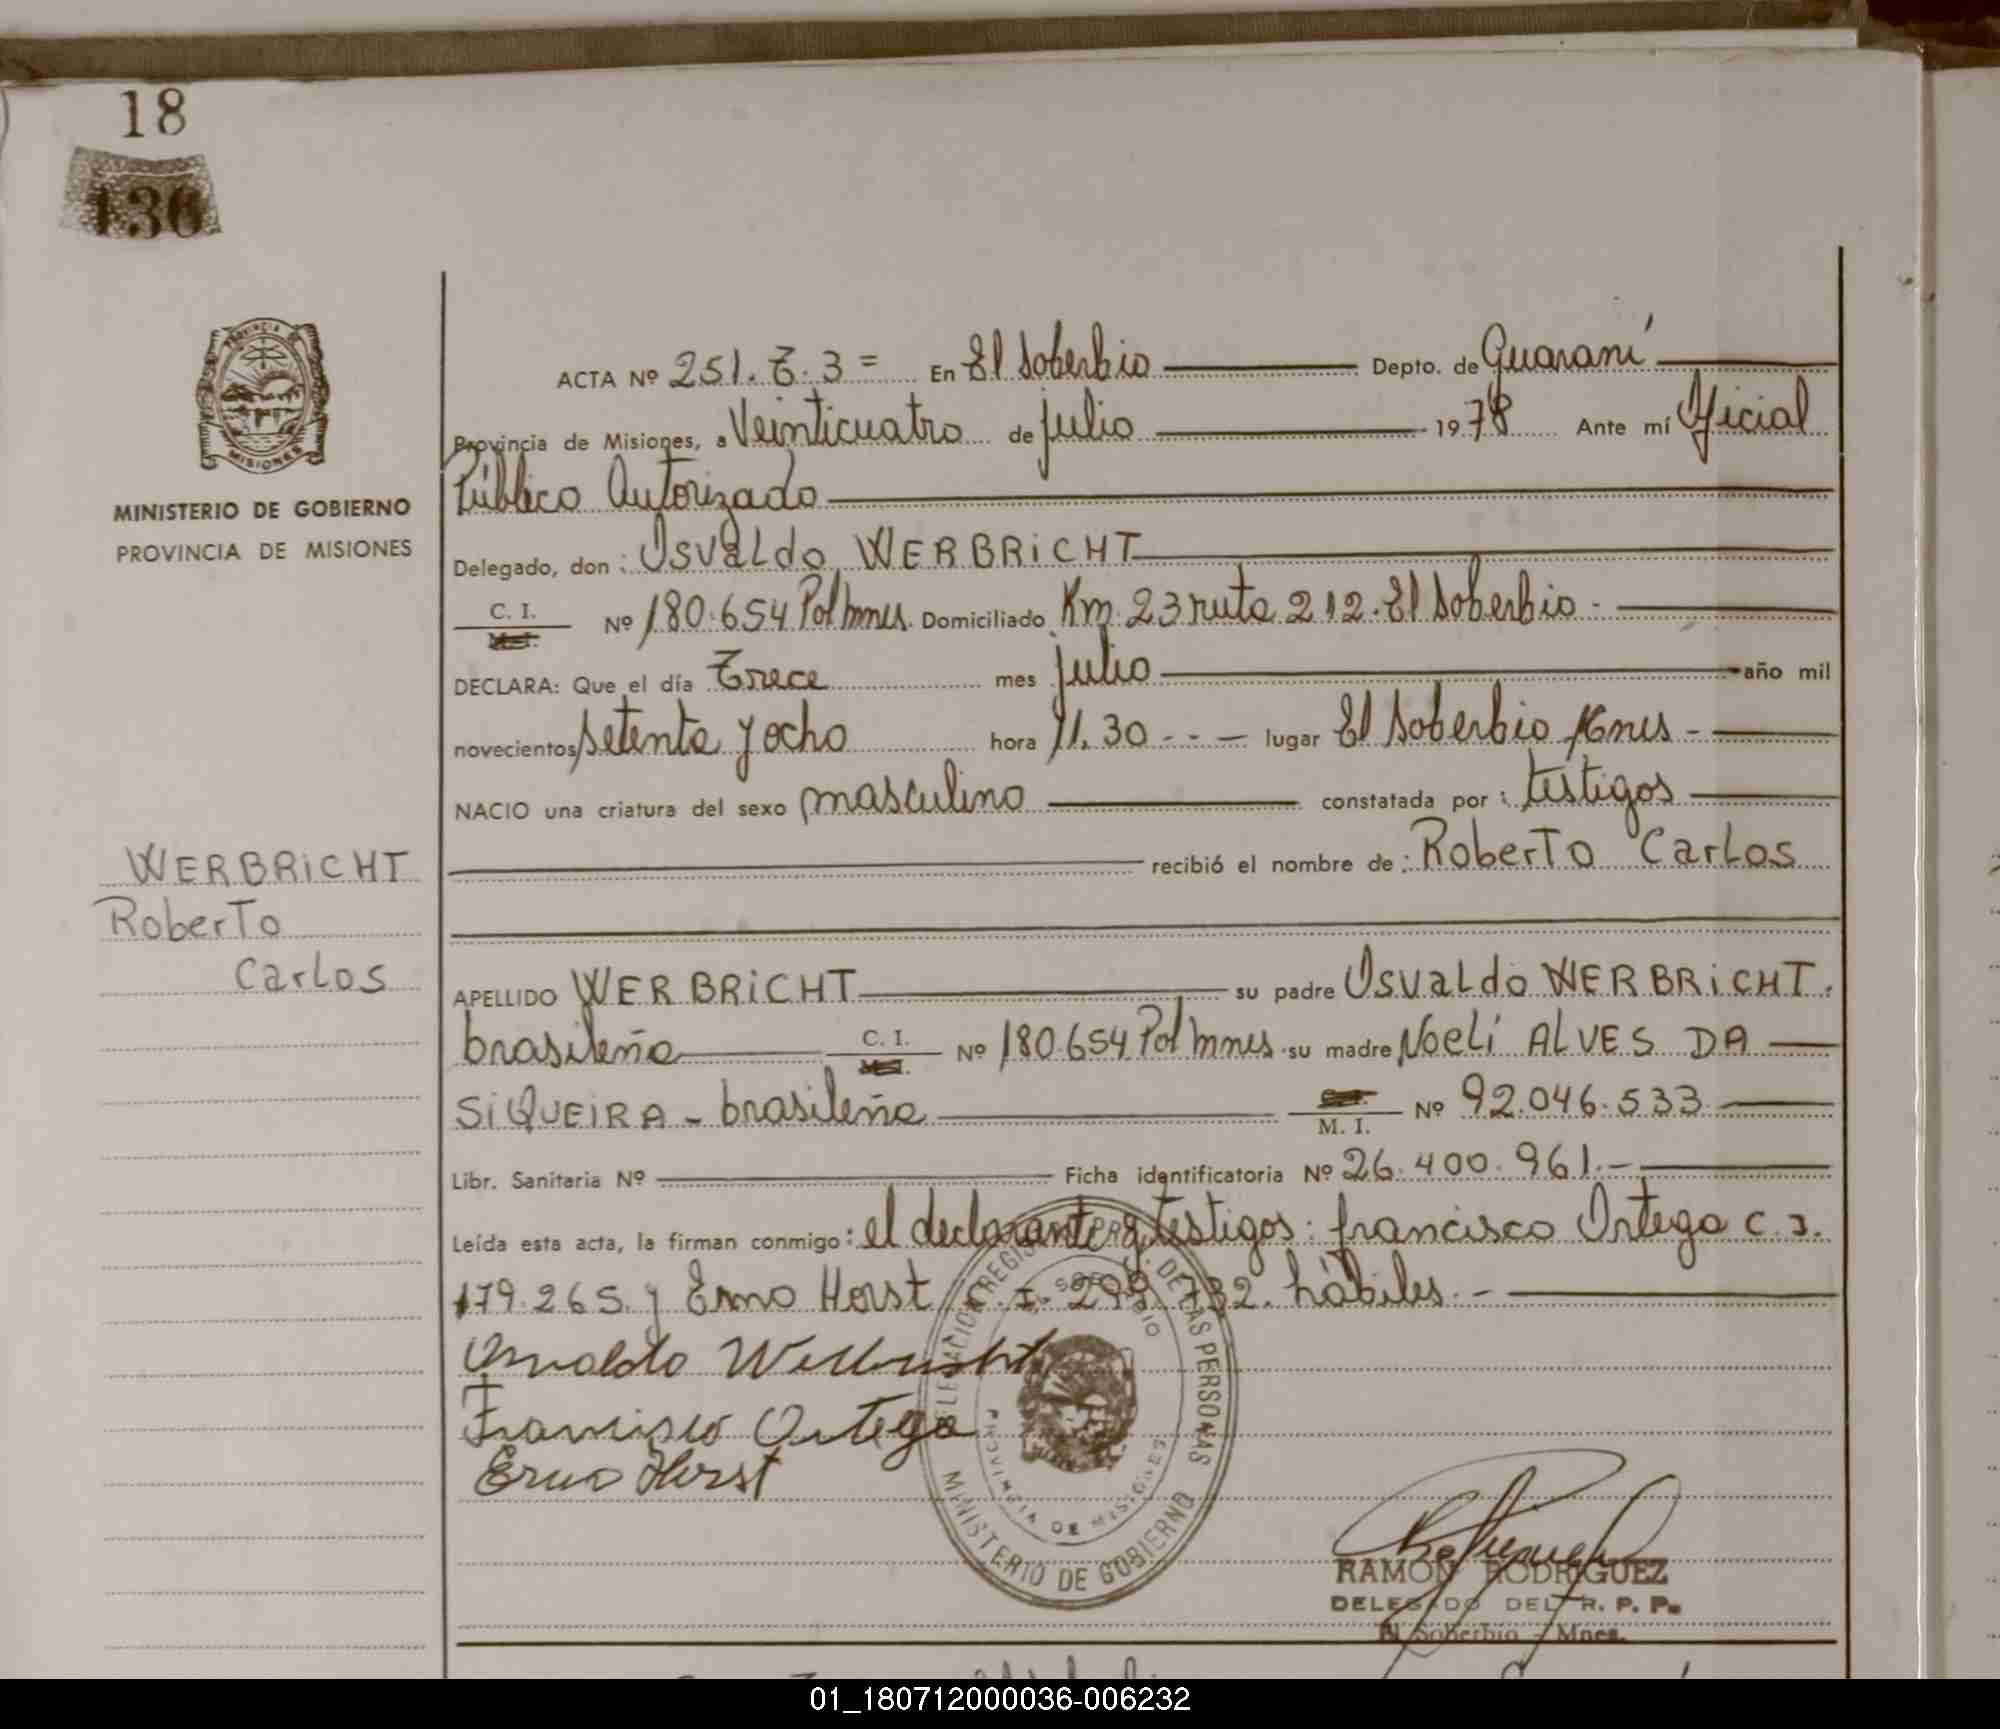 18
130
PROVINCIA DE
MISIONES
MINISTERIO DE GOBIERNO
PROVINCIA DE MISIONES
WERBRICHT
Roberto
Carlos
ACTA Nº 251. T. 3 = En El Soberbio Depto. de Guaraní
Provincia de Misiones, a Veinticuatro de julio 1978 Ante mí Oficial
Público Autorizado
Delegado, don: Osvaldo WERBRICHT
C. I. Nº 180.654 Pol Mnes. Domiciliado Km. 23 ruta 212. El Soberbio.-
DECLARA: Que el día Trece mes julio año mil
novecientos setenta y ocho hora 11.30 - - - lugar El Soberbio Mnes -
NACIO una criatura del sexo masculino constatada por: testigos
recibió el nombre de: Roberto Carlos
APELLIDO WERBRICHT su padre Osvaldo WERBRICHT.
brasileña C. I. Nº 180.654 Pol Mnes su madre Noeli ALVES DA
SIQUEIRA - brasileña M. I. Nº 92.046.533
Libr. Sanitaria Nº Ficha identificatoria Nº 26.400.961.-
Leída esta acta, la firman conmigo: el declarante y testigos: francisco Ortega C. I.
179.265 y Erno Horst C. I. 299.732. hábiles.-
Osvaldo Werbricht
Francisco Ortega
Erno Horst
DELEGACION REGISTRO DE LAS PERSONAS
MINISTERIO DE GOBIERNO
EL SOBERBIO
PROVINCIA DE MISIONES
RAMON RODRIGUEZ
DELEGADO DEL R. P. P.
El Soberbio - Mnes.
01_180712000036-006232